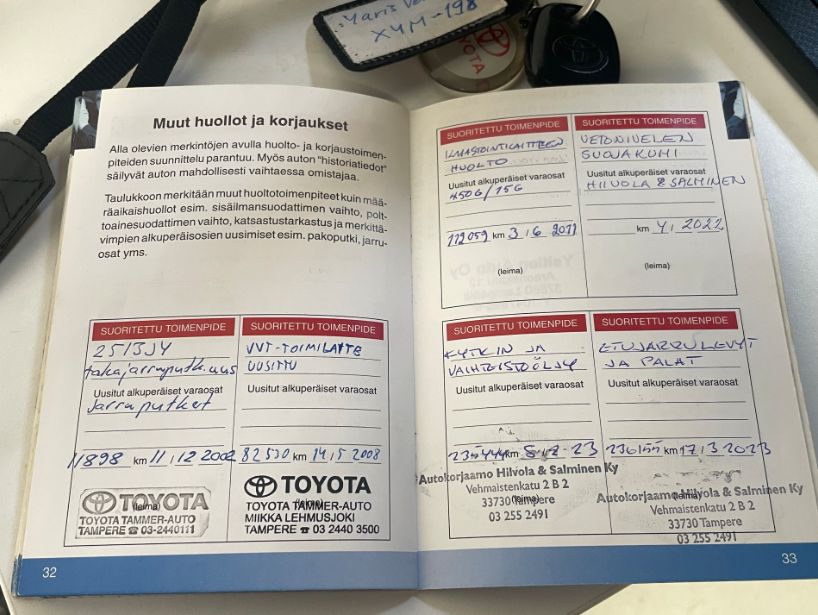 Yaris Ve
XYM-198
TOYOTA
Muut huollot ja korjaukset
Alla olevien merkintöjen avulla huolto- ja korjaustoimen-
piteiden suunnittelu parantuu. Myös auton "historiatiedot"
säilyvät auton mahdollisesti vaihtaessa omistajaa.
Taulukkoon merkitään muut huoltotoimenpiteet kuin mää-
räaikaishuollot esim. sisäilmansuodattimen vaihto, polt-
toainesuodattimen vaihto, katsastustarkastus ja merkittä-
vimpien alkuperäisosien uusimiset esim. pakoputki, jarru-
osat yms.
SUORITETTU TOIMENPIDE
2513JY
takajarruputk.uus
Uusitut alkuperäiset varaosat
Jarruputket
11898 km 11.12.2002
(leima)
TOYOTA
TOYOTA TAMMER-AUTO
TAMPERE ☎ 03-2440111
SUORITETTU TOIMENPIDE
VVT-TOIMILAITE
UUSITTU
Uusitut alkuperäiset varaosat
82530 km 14.5.2008
TOYOTA
(leima)
TOYOTA TAMMER-AUTO
MIIKKA LEHMUSJOKI
TAMPERE ☎ 03 2440 3500
32
SUORITETTU TOIMENPIDE
ILMASTOINTILAITTEEN
HUOLTO
Uusitut alkuperäiset varaosat
450G/15G
112059 km 3.6.2011
(leima)
SUORITETTU TOIMENPIDE
VETONIVELEN
SUOJAKUMI
Uusitut alkuperäiset varaosat
HILVOLA & SALMINEN
km 4. 2022
(leima)
SUORITETTU TOIMENPIDE
KYTKIN JA
VAIHTEISTOÖLJY
Uusitut alkuperäiset varaosat
km
23
Autokorjaamo Hilvola & Salminen Ky
(leima)
Vehmaistenkatu 2 B 2
33730 Tampere
03 255 2491
SUORITETTU TOIMENPIDE
ETUJARRULEVYT
JA PALAT
Uusitut alkuperäiset varaosat
236155 km 17.3 2023
(leima)
Autokorjaamo Hilvola & Salminen Ky
Vehmaistenkatu 2 B 2
33730 Tampere
03 255 2491
33